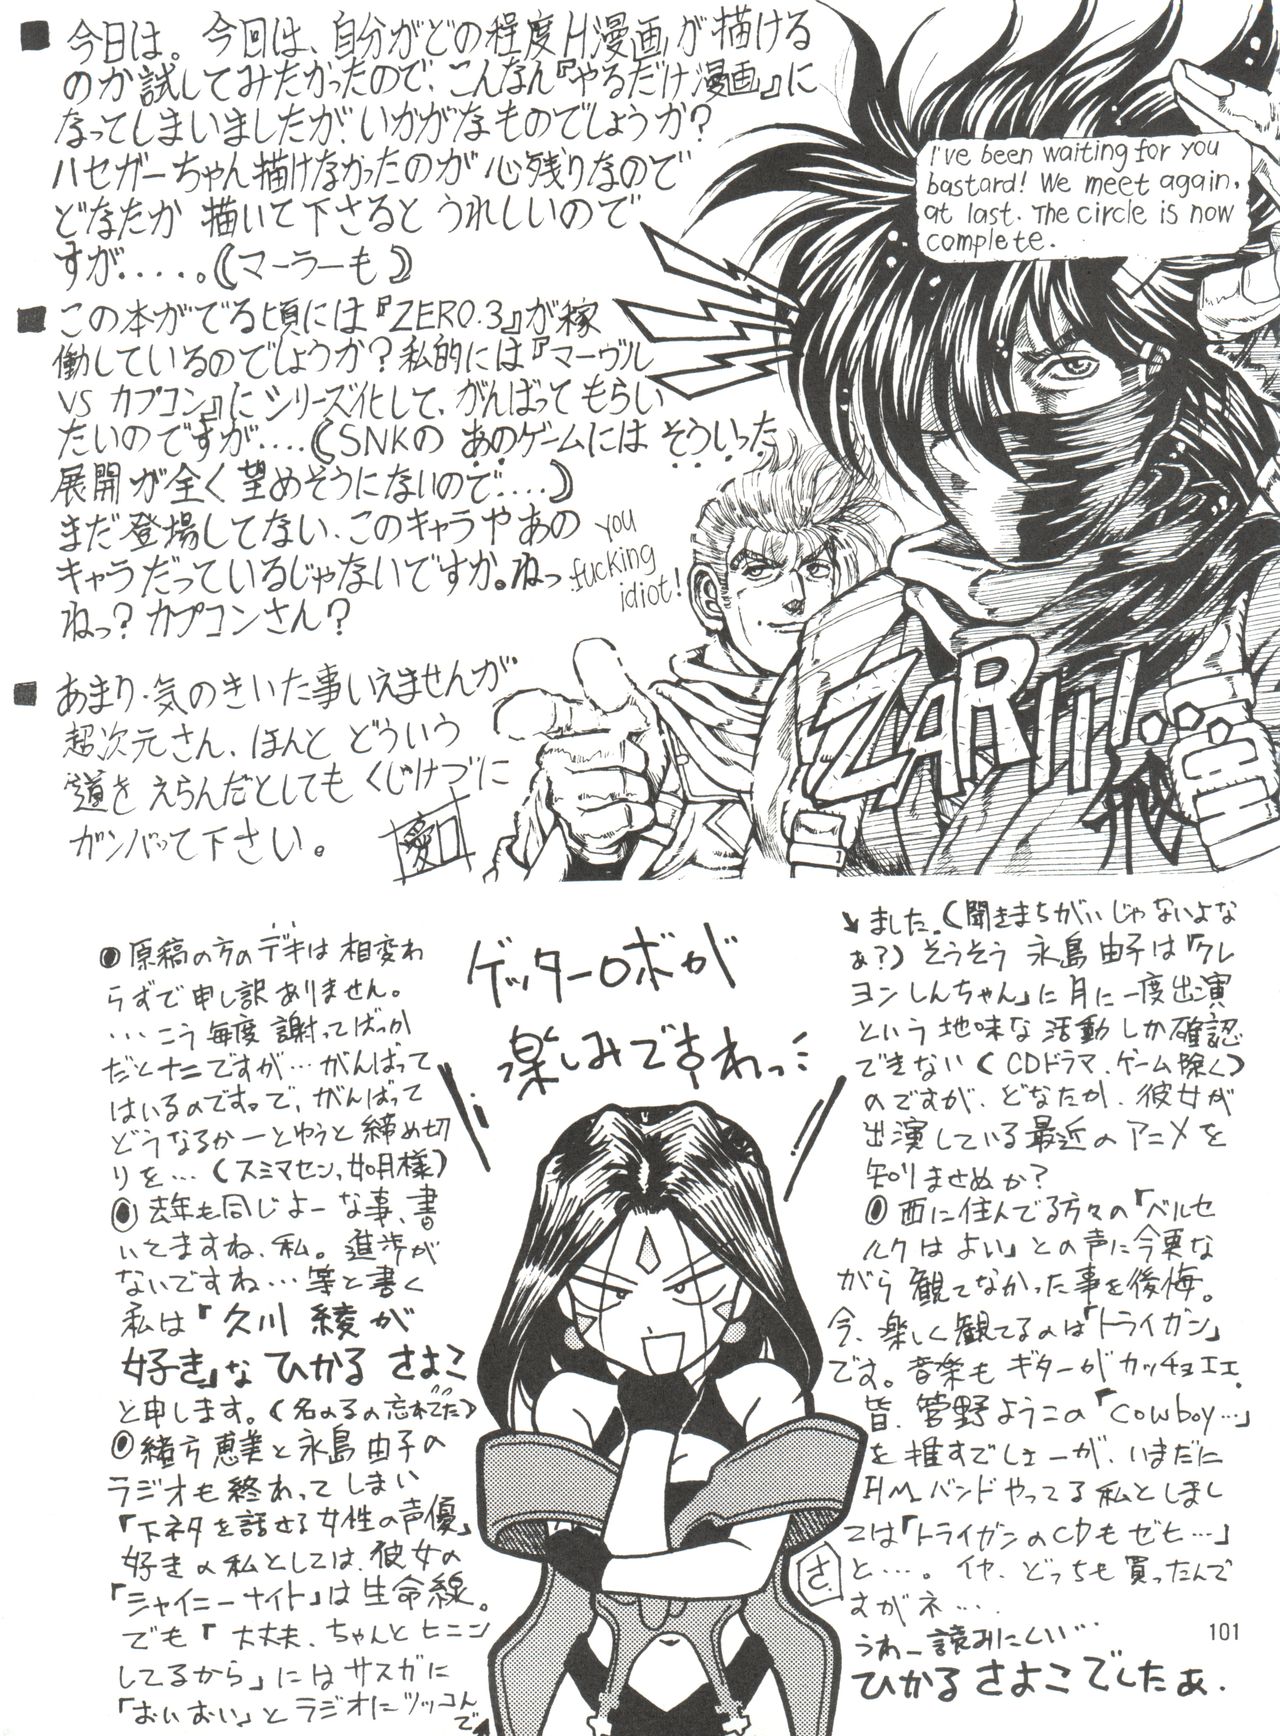 ■今日は。今回は、自分がどの程度H漫画が描ける
のか試してみたかったので、こんなん『やるだけ漫画』に
なってしまいましたが、いかがなものでしょうか?
ハセガーちゃん描けなかったのが心残りなので
どなたか描いて下さるとうれしいので
すが.....。(マーラーも)
■この本がでる頃には『ZERO.3』が稼
働しているのでしょうか?私的には『マーヴル
VS カプコン』にシリーズ化して、がんばってもらい
たいのですが....(SNKのあのゲームにはそういった
展開が全く望めそうにないので....)
まだ登場してない、このキャラやあの
キャラだっているじゃないですか。ねっ
ねっ?カプコンさん?
■あまり・気のきいた事いえませんが
超次元さん、ほんとどういう
道をえらんだとしてもくじけづに
ガンバって下さい。
愛口
I've been waiting for you
bastard! We meet again,
at last. The circle is now
complete.
you
fucking
idiot!
ZARIII!
飛
ゲッターロボが
楽しみですわっ…
●原稿の方のデキは相変わ
らずで申し訳ありません。
…こう毎度謝ってばっか
だとナニですが…がんばって
はいるのです。で、がんばって
どうなるかーとゆうと締め切
りを…(スミマセン,如月様)
●去年も同じよーな事、書
いてますね、私。進歩が
ないですね…等と書く
私は「久川 綾が
好き」な ひかる さよこ
と申します。(名のるの忘れてた)
●緒方恵美と永島由子の
ラジオも終わってしまい
「下ネタを話せる女性の声優」
好きの私としては、彼女の
「シャイニーナイト」は生命線。
でも「大丈夫、ちゃんとヒニン
してるから」にはサスガに
「おいおい」とラジオにツッコんで
ました。(聞きまちがいじゃないよな
ぁ?)そうそう永島由子は「クレ
ヨンしんちゃん」に月に一度出演
という地味な活動しか確認
できない(CDドラマ、ゲーム除く)
のですが、どなたか、彼女が
出演している最近のアニメを
知りませぬか?
●西に住んでる方々の「ベルセ
ルクはよい」との声に今更な
がら観てなかった事を後悔。
今、楽しく観てるのは「トライガン」
です。音楽もギターがカッチョエエ。
皆、菅野ようこの「COWboy…」
を推すでしょーが、いまだに
H.M.バンドやってる私としまし
ては「トライガンのCDもゼヒ…」
と…。イヤ、どっちも買ったんで
すがネ…
うわー読みにくい…
ひかる さよこでしたぁ.
さ
101